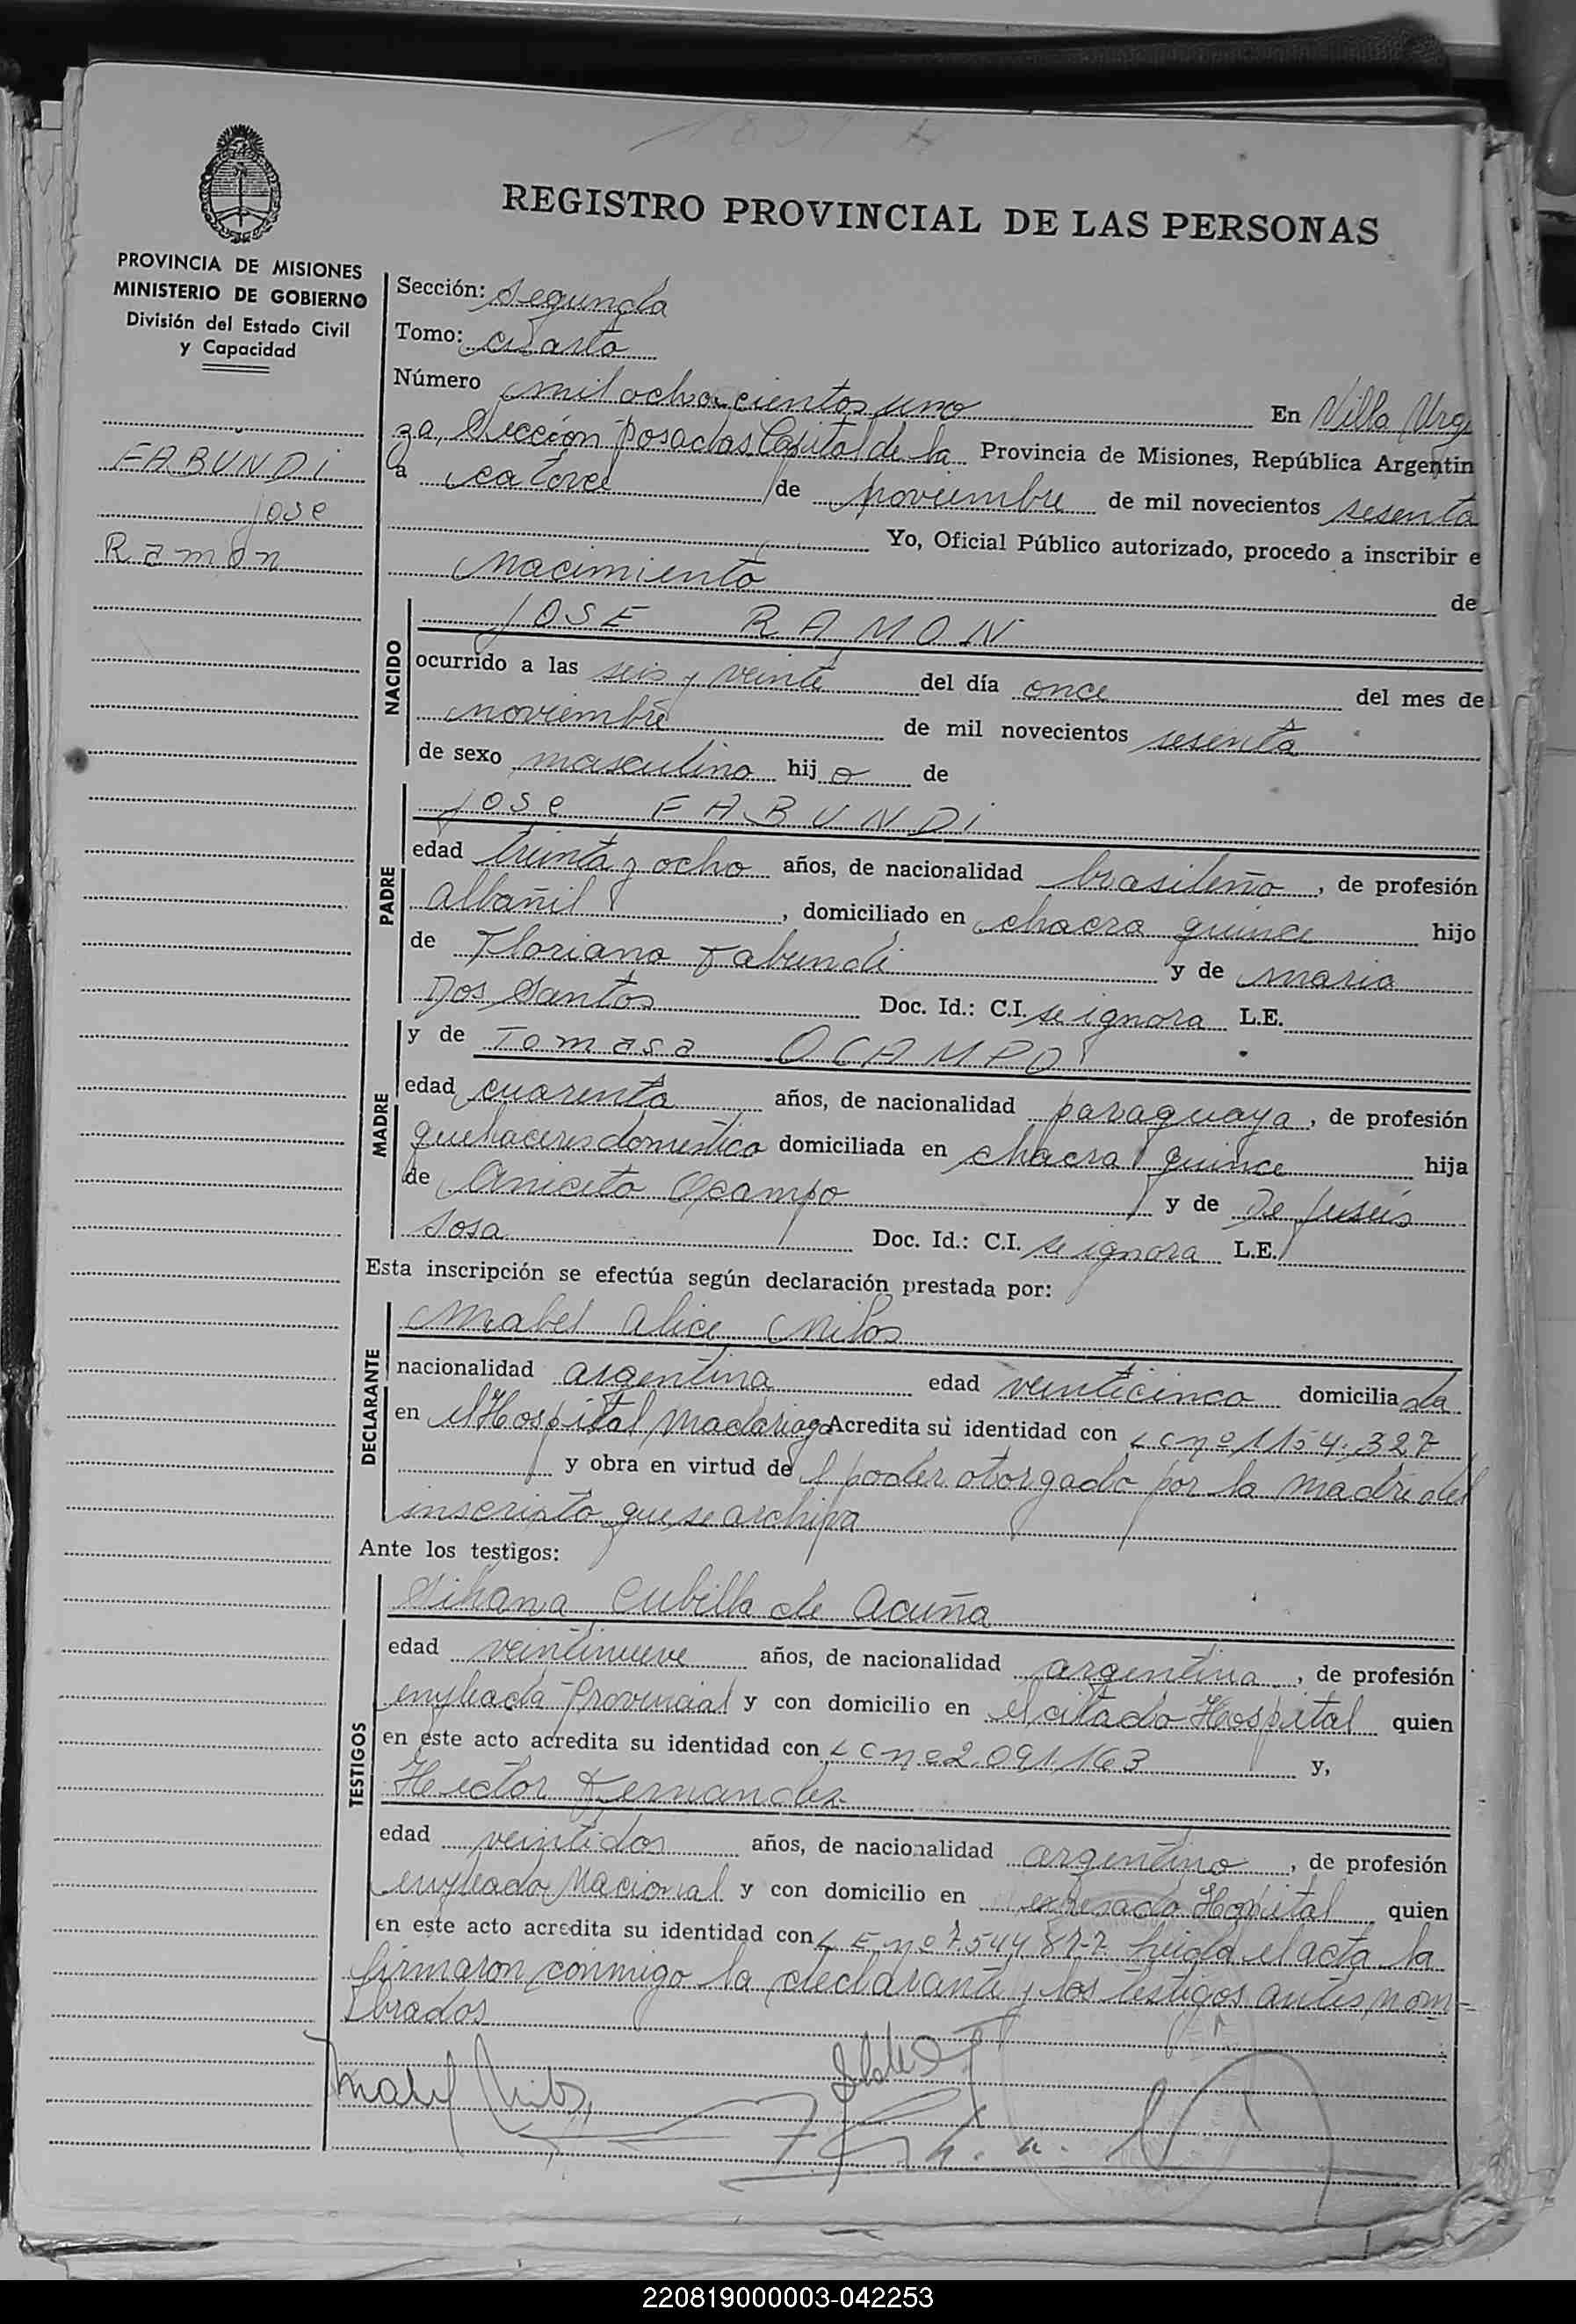 REGISTRO PROVINCIAL DE LAS PERSONAS
PROVINCIA DE MISIONES
MINISTERIO DE GOBIERNO
División del Estado Civil
y Capacidad
FABUNDI
Jose
Ramon
Sección: Segunda
Tomo: cuarto
Número mil ochocientos uno En Villa Urqu
za, Sección Posadas Capital de la Provincia de Misiones, República Argentin
a catorce de noviembre de mil novecientos sesenta
Yo, Oficial Público autorizado, procedo a inscribir e
Nacimiento de
NACIDO
JOSE RAMON
ocurrido a las seis y veinte del día once del mes de
noviembre de mil novecientos sesenta
de sexo masculino hijo de
PADRE
Jose FABUNDI
edad treinta y ocho años, de nacionalidad brasileño, de profesión
albañil, domiciliado en chacra quince hijo
de Floriano Fabundi y de Maria
Dos Santos Doc. Id.: C.I. se ignora L.E.
MADRE
y de Tomasa OCAMPO
edad cuarenta años, de nacionalidad paraguaya, de profesión
quehaceres domestico domiciliada en chacra quince hija
de Aniceto Ocampo y de De Jesús
Sosa Doc. Id.: C.I. se ignora L.E.
Esta inscripción se efectúa según declaración prestada por:
DECLARANTE
Mabel Alice
nacionalidad argentina edad veinticinco domiciliada
en el Hospital Madariaga Acredita su identidad con L C nº 1154.327
y obra en virtud del poder otorgado por la madre del
inscripto que se archiva
Ante los testigos:
TESTIGOS
Cubilla de Acuña
edad veintinueve años, de nacionalidad argentina, de profesión
empleada Provincial y con domicilio en el citado Hospital quien
en este acto acredita su identidad con L C nº 2.091.163 y,
Hector Fernandez
edad veintidos años, de nacionalidad argentino, de profesión
empleado Nacional y con domicilio en expresado Hospital quien
en este acto acredita su identidad con L E nº 7.544 877 leida el acta la
firmaron conmigo la declarante y los testigos antes nom-
brados
220819000003-042253